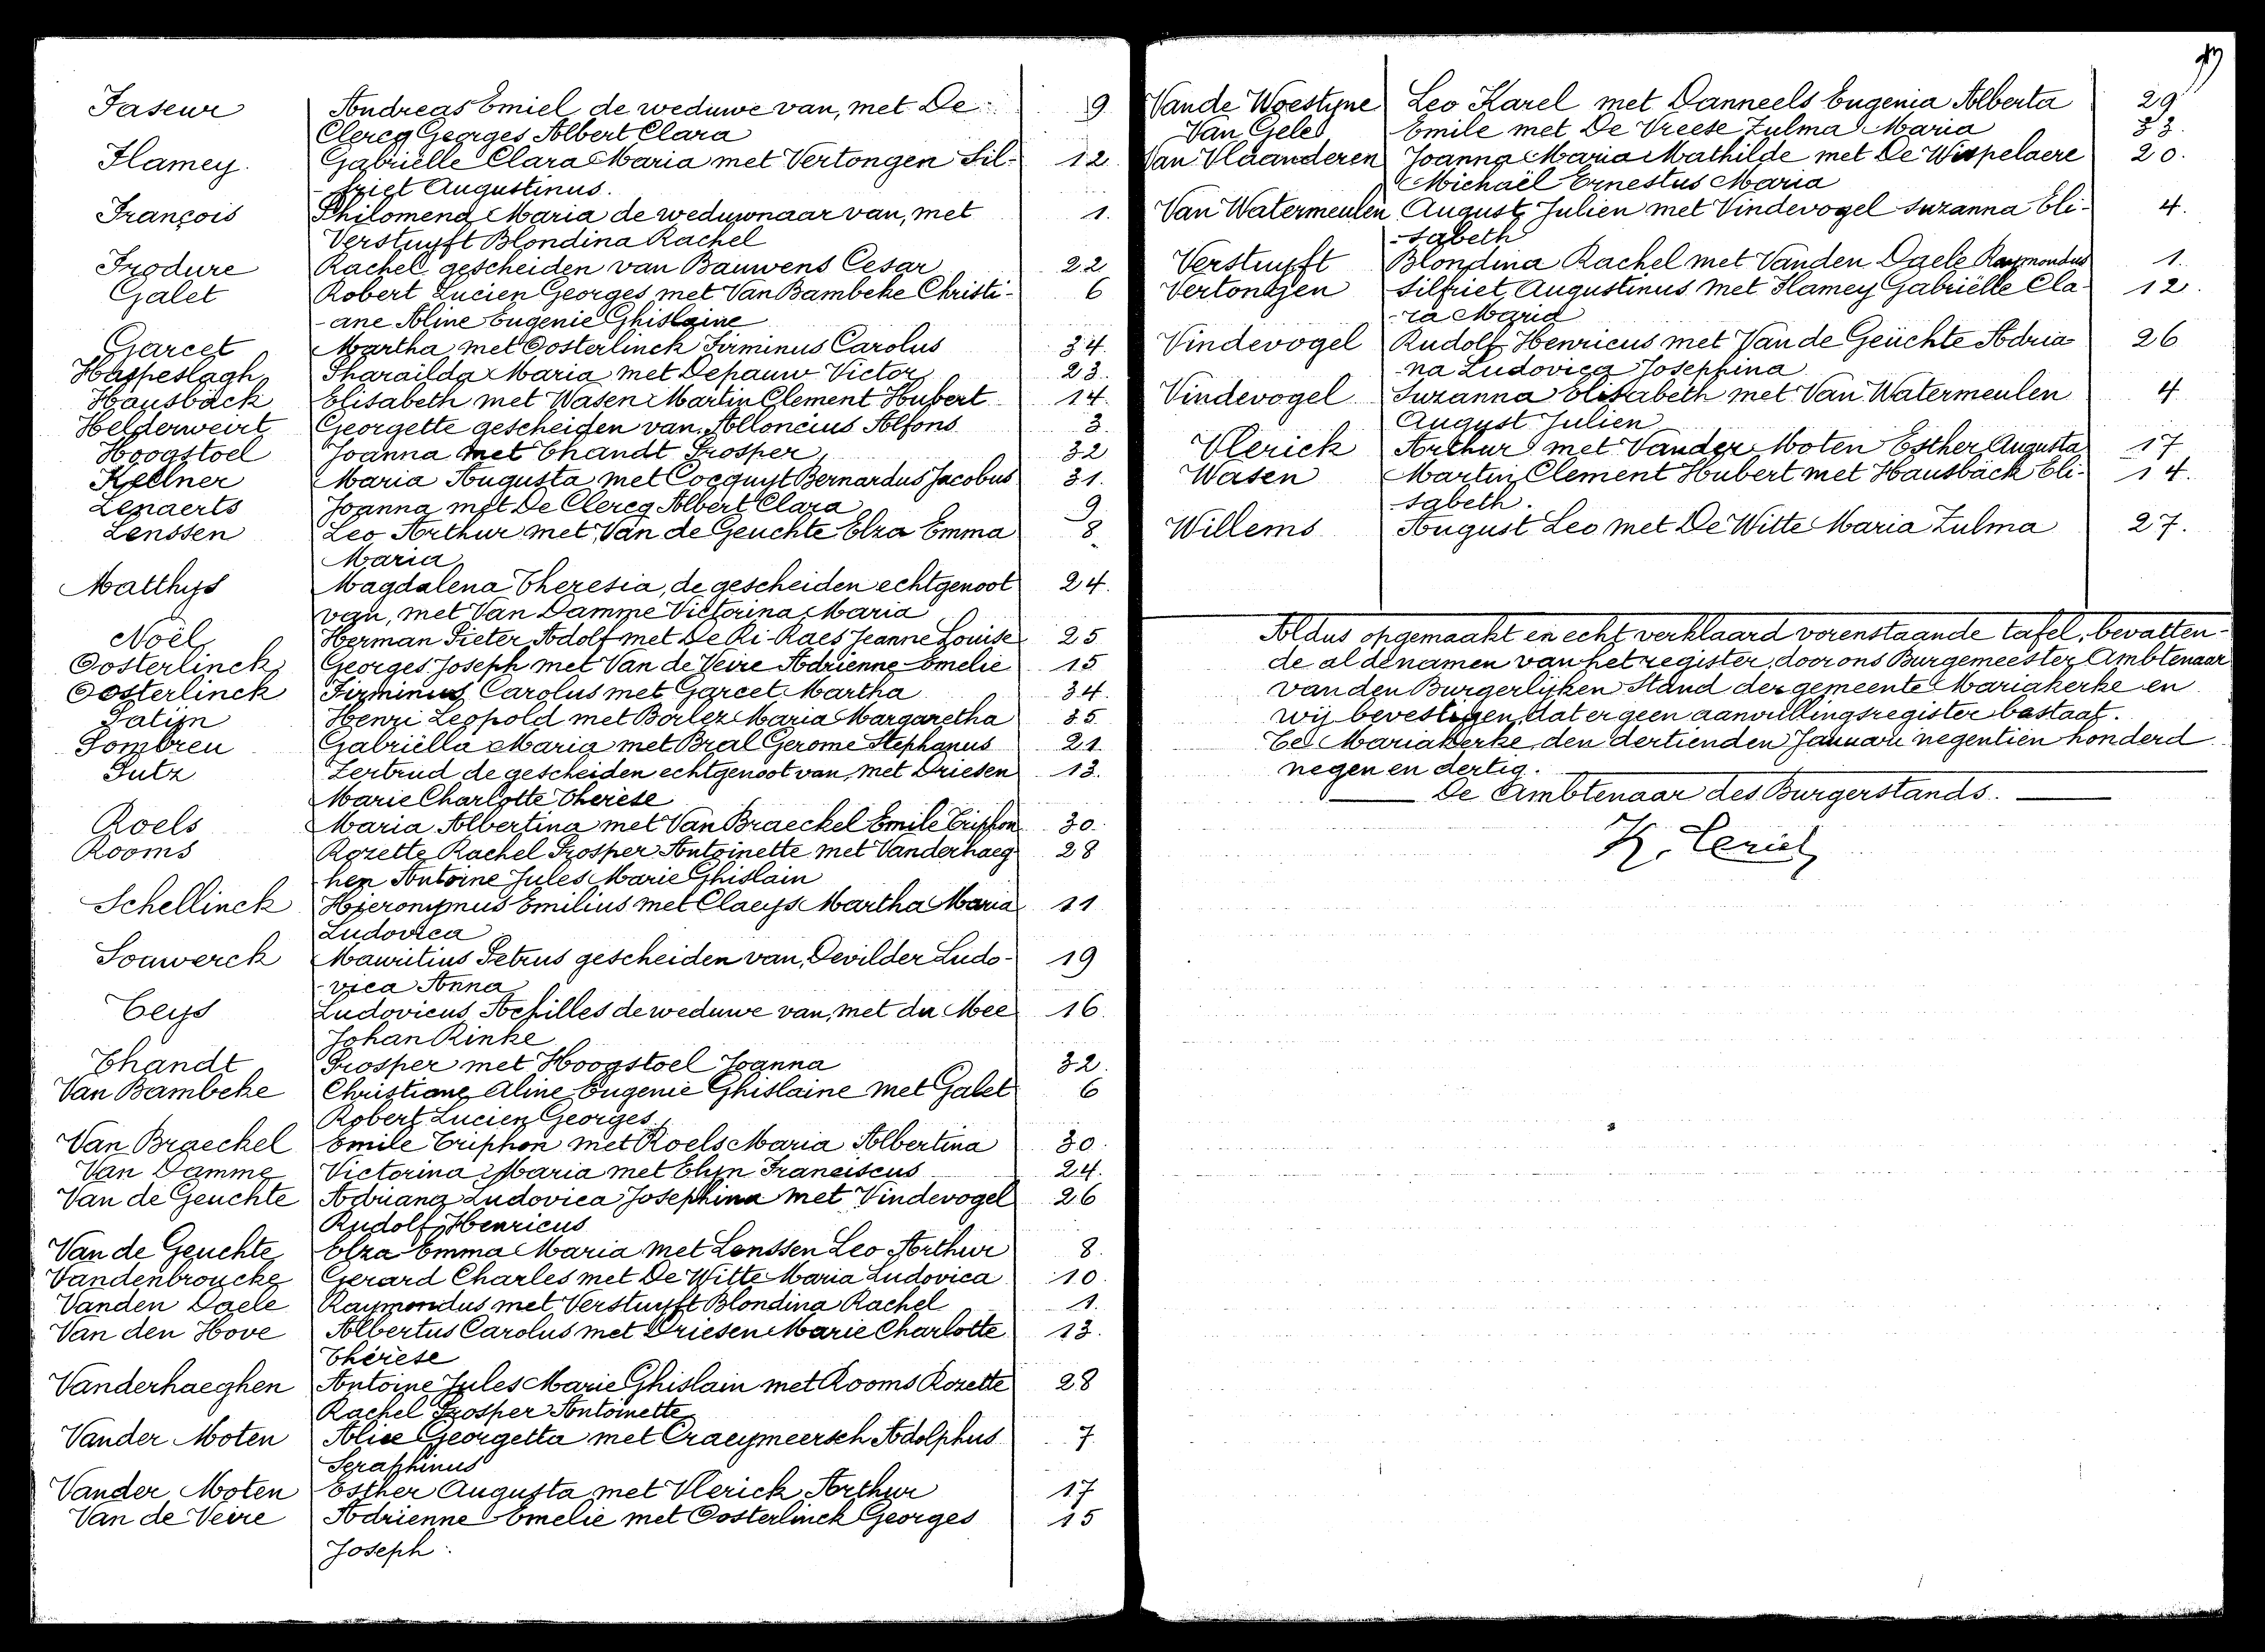 Faseur Andreas Emiel de weduwe van, met De 9
Clercq Georges Albert Clara
Flamey. Gabriëlle Clara Maria met Vertongen Sil- 12
-friet Augustinus.
François Philomena Maria de weduwnaar van, met 1.
Verstuyft Blondina Rachel
Frodure Rachel gescheiden van Bauwens Cesar 22
Galet Robert Lucien Georges met Van Bambeke Christi- 6
-ane Aline Eugenie Ghislaine
Garcet Martha met Oosterlinck Firminus Carolus 34.
Haspeslagh Pharaïlda Maria met Depauw Victor 23.
Hausbäck Elisabeth met Wasen Martin Clement Hubert 14.
Helderweirt Georgette gescheiden van Alloncius Alfons 3.
Hoogstoel Joanna met Thandt Prosper 32
Kellner Maria Augusta met Cocquyt Bernardus Jacobus 31.
Lenaerts Joanna met De Clercq Albert Clara 9.
Lenssen Leo Arthur met Van de Geuchte Elza Emma 8
Maria
Matthys Magdalena Theresia, de gescheiden echtgenoot 24.
van, met Van Damme Victorina Maria
Noël Herman Pieter Adolf met De Ri-Raes Jeanne Louise 25
Oosterlinck Georges Joseph met Van de Veire Adrienne Emelie 15
Oosterlinck Firminus Carolus met Garcet Martha 34.
Patijn Henri Leopold met Borlez Maria Margaretha 35.
Pombreu Gabriëlla Maria met Bral Gerome Stephanus 21.
Putz Gertrud de gescheiden echtgenoot van, met Driesen 13.
Marie Charlotte Thérèse
Roels Maria Albertina met Van Braeckel Emile Triphon 30.
Rooms Rozette Rachel Prosper Antoinette met Vanderhaeg 28
hen Antoine Jules Marie Ghislain
Schellinck Hieronymus Emilius met Claeys Martha Maria 11
Ludovica
Souwerck Mauritius Petrus gescheiden van, Devilder Ludo- 19
-vica Anna
Teys Ludovicus Achilles de weduwe van, met du Mee 16.
Johan Rinke
Thandt Prosper met Hoogstoel Joanna 32.
Van Bambeke Christiane Aline Eugenie Ghislaine met Galet 6
Robert Lucien Georges
Van Braeckel Emile Triphon met Roels Maria Albertina 30.
Van Damme Victorina Maria met Elyn Franciscus 24.
Van de Geuchte Adriana Ludovica Josephina met Vindevogel 26
Rudolf Henricus
Van de Geuchte Elza Emma Maria met Lenssen Leo Arthur 8.
Vandenbroucke Gerard Charles met De Witte Maria Ludovica 10.
Vanden Daele Raymondus met Verstuyft Blondina Rachel 1.
Van den Hove Albertus Carolus met Driesen Marie Charlotte 13.
Thérèse
Vanderhaeghen Antoine Jules Marie Ghislain met Rooms Rozette 28
Rachel Prosper Antoinette
Vander Moten Alice Georgetta met Craeymeersch Adolphus 7
Seraphinus
Vander Moten Esther Augusta met Vlerick Arthur 17
Van de Veire Adrienne Emelie met Oosterlinck Georges 15
Joseph.
Vande Woestyne Leo Karel met Danneels Eugenia Alberta 29
Van Gele Emile met De Vreese Zulma Maria 33.
Van Vlaanderen Joanna Maria Mathilde met De Wispelaere 20.
Michaël Ernestus Maria
Van Watermeulen August Julien met Vindevogel Suzanna Eli- 4.
-sabeth
Verstuyft Blondina Rachel met Vanden Daele Raymondus 1.
Vertongen Silfriet Augustinus met Flamey Gabriëlle Cla- 12.
-ra Maria
Vindevogel Rudolf Henricus met Van de Geuchte Adria 26
na Ludovica Josephina
Vindevogel Suzanna Elisabeth met Van Watermeulen 4
August Julien
Vlerick Arthur met Vander Moten Esther Augusta 17
Wasen Martin Clement Hubert met Hausbäck Eli- 14.
-sabeth.
Willems August Leo met De Witte Maria Zulma 27.
Aldus opgemaakt en echt verklaard vorenstaande tafel, bevatten-
de al de namen van het register, door ons Burgemeester Ambtenaar
van den Burgerlijken Stand der gemeente Mariakerke en
wij bevestigen, dat er geen aanvullingsregister bestaat.
Te Mariakerke, den dertienden Januari negentien honderd
negen en dertig.
De Ambtenaar des Burgerstands.